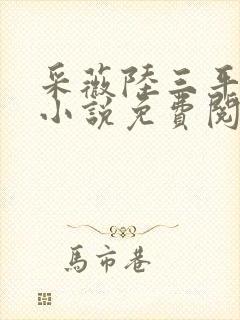 采薇陸三平
小說免費閱
馬市巷